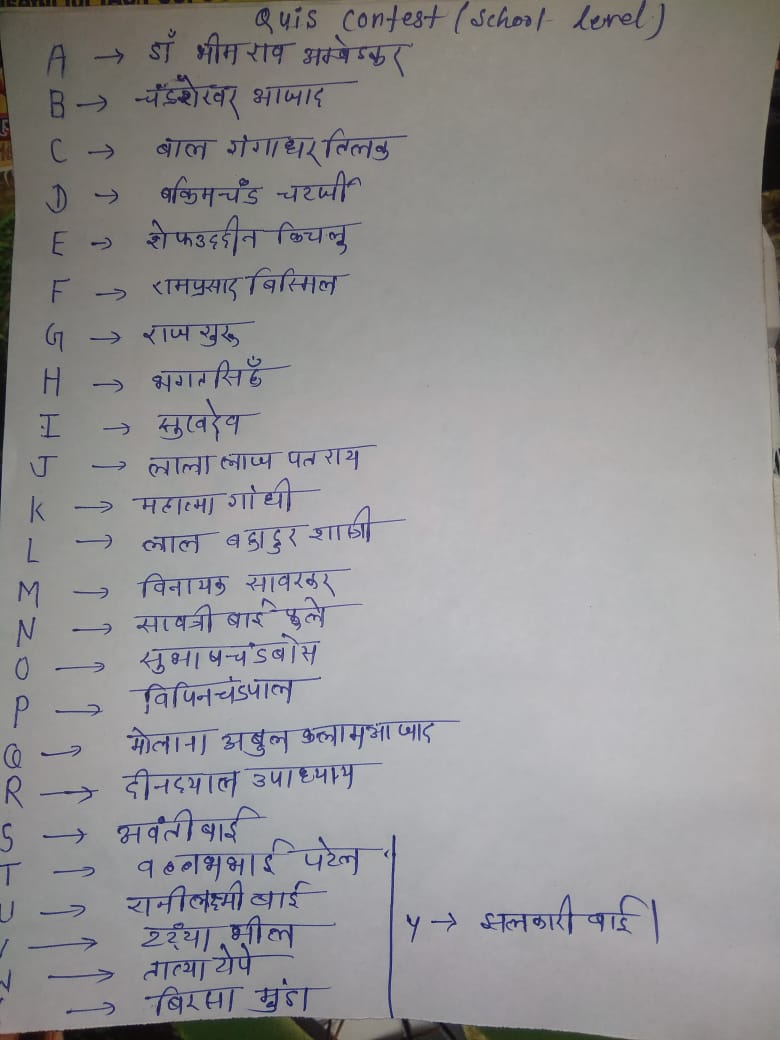 Quis Contest (School level)
A → डाँ भीमराव अम्बेडकर
B → चँडशेखर आजाद
C → बाल गंगाधर तिलक
D → बकिमचँड चटर्जी
E → शेफउददीन किचलू
F → रामप्रसाद बिस्मिल
G → राजगुरू
H → भगतसिहँ
I → सुखदेव
J → लाला लाज पतराय
K → महात्मा गांधी
L → लाल बहादुर शास्त्री
M → विनायक सावरकर
N → सावत्री बाई फुले
O → सुभाषचंडबोस
P → विपिनचंडपाल
Q → मोलाना अबुल कलामआजाद
R → दीनदयाल उपाध्याय
S → अवंतीबाई
T → वल्लभभाई पटेल
U → रानीलक्ष्मी बाई
→ टंट्या भील
→ तात्या टोपे
→ बिरसा मुंडा
Y → झलकारी बाई